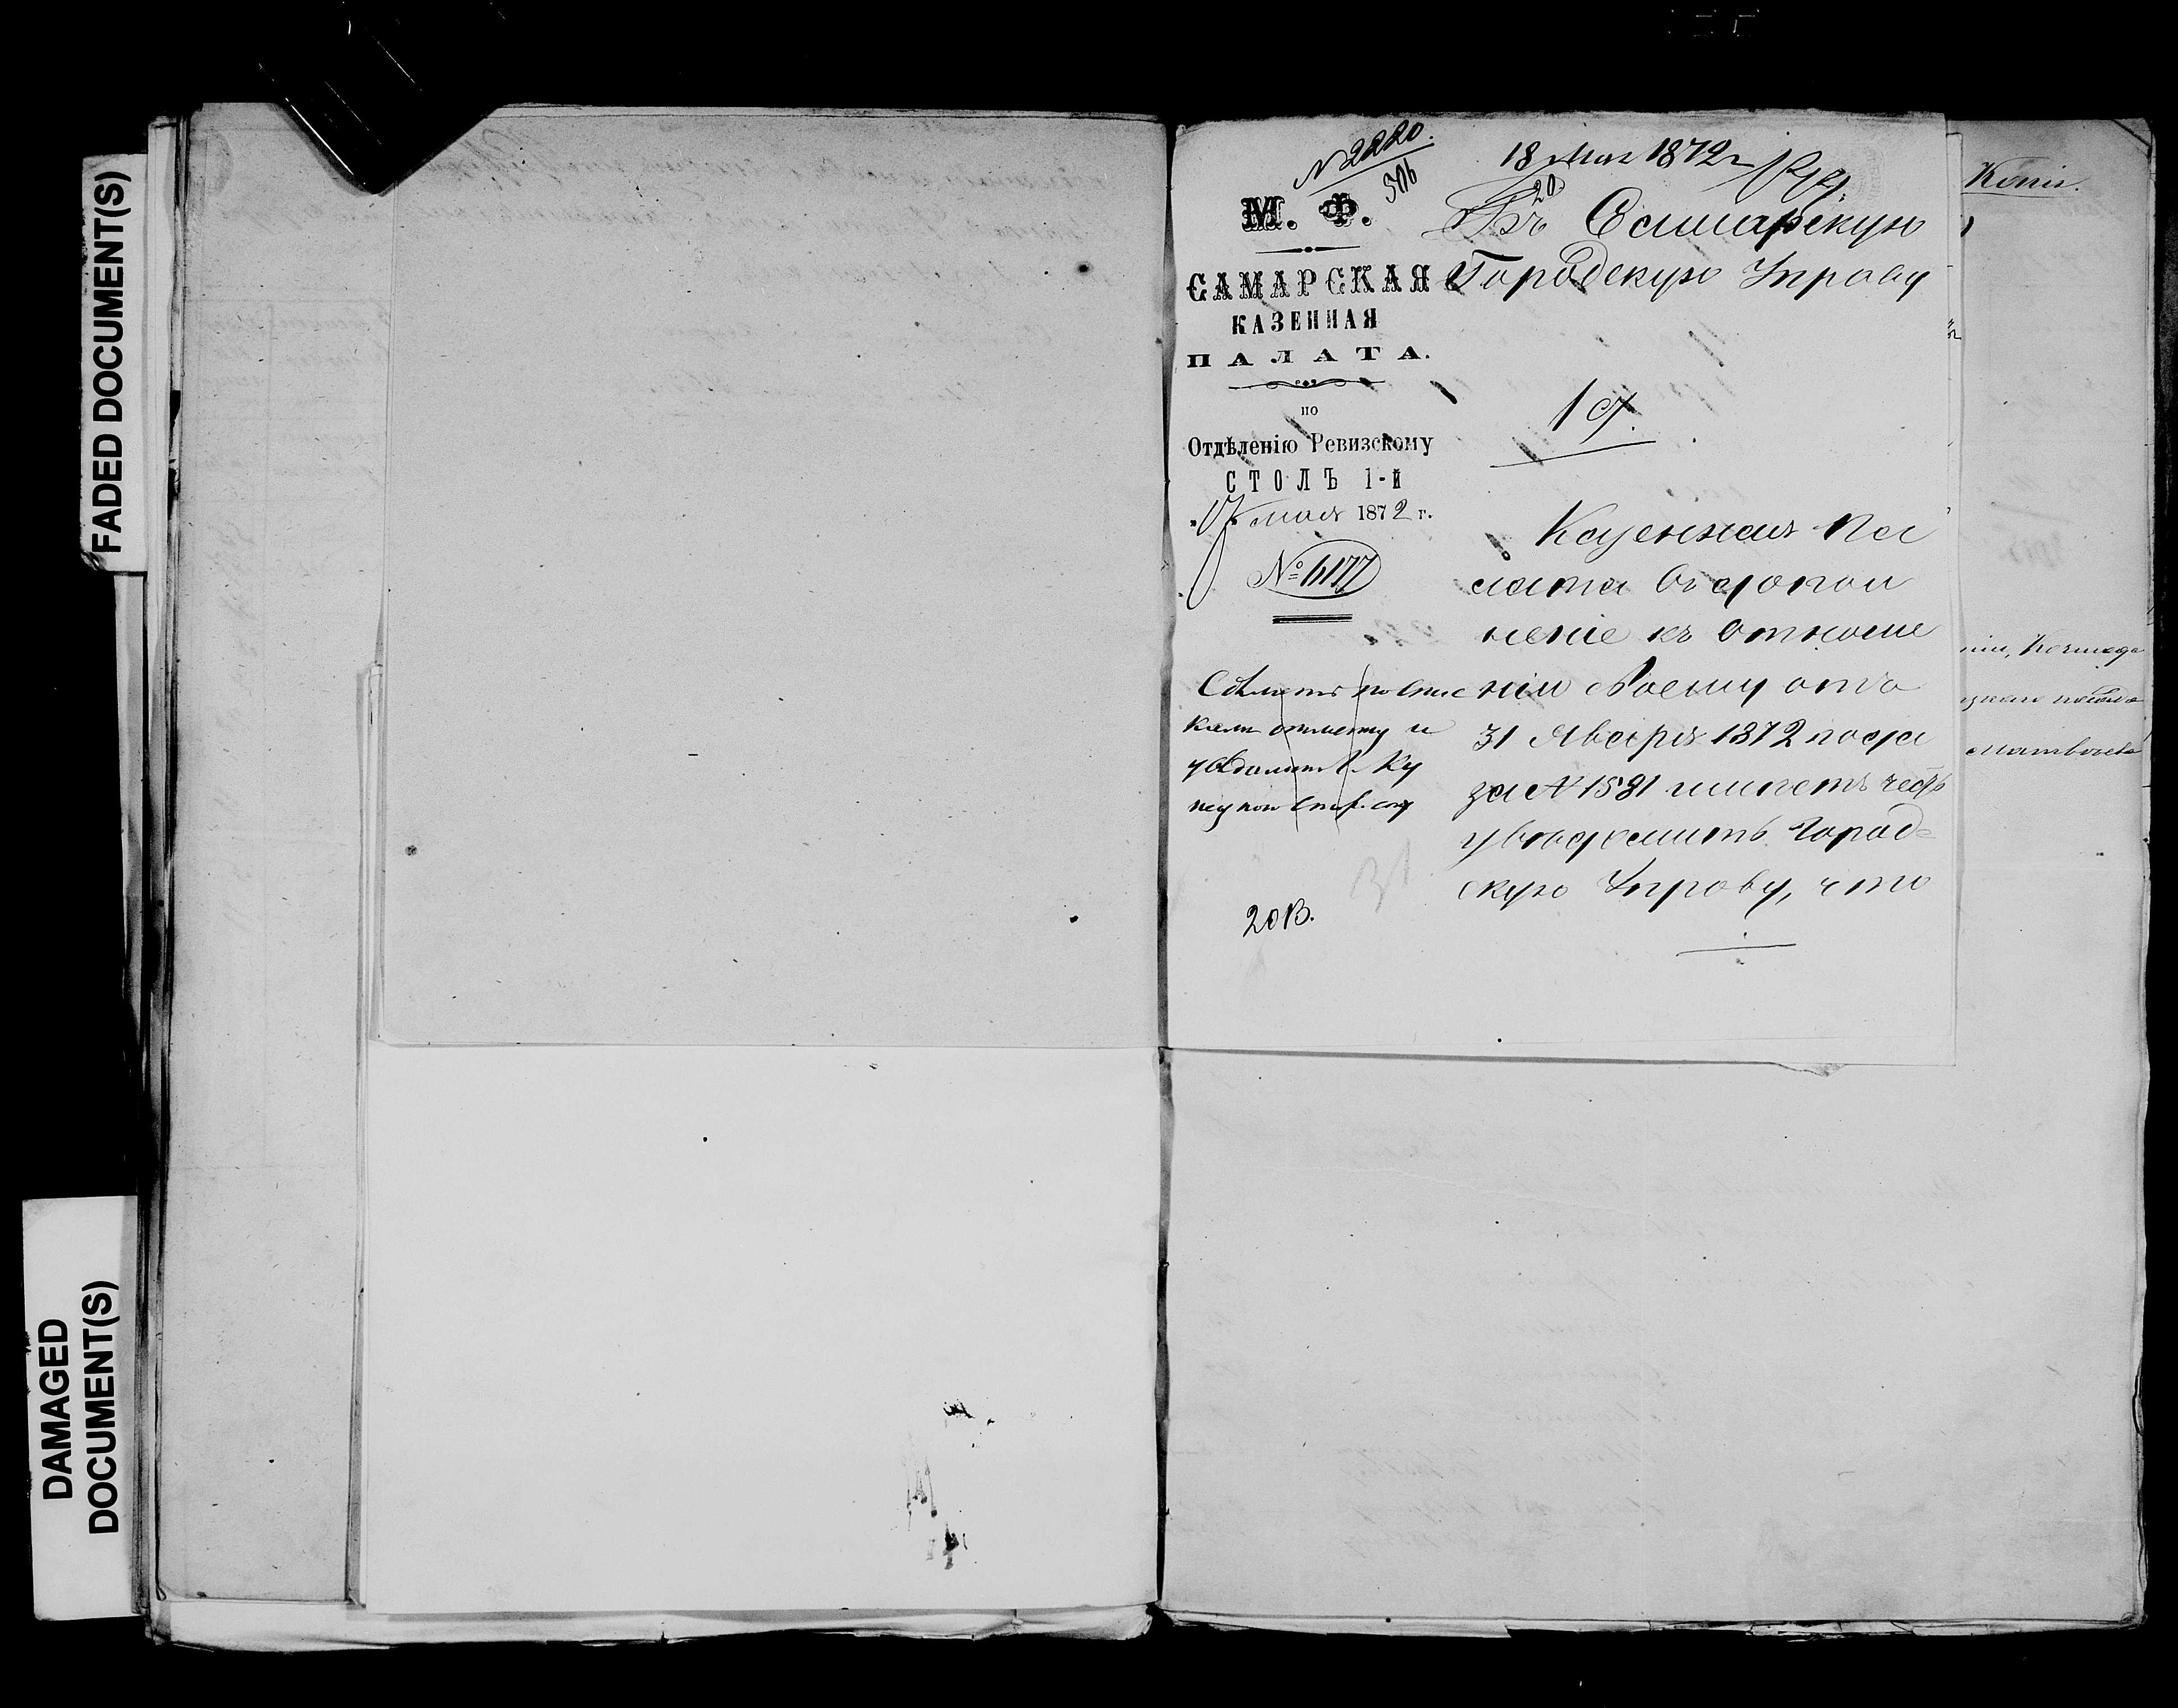 FADED DOCUMENT(S)
DAMAGED
DOCUMENT(S)
№ 2220.
18 Мая 1872 г
20
М. Ф.
САМАРСКАЯ
КАЗЕННАЯ
ПАЛАТА.
по
Отдѣленію Ревизскому
СТОЛЪ 1-й
17 мая 1872 г.
№ 4177
Сдѣлать по спис
камъ отмѣтку и
увѣдомить Ку
20 В.
Въ Самарскую
Городскую Управу
Казенная Па
лата въ допол
неніе къ отноше
нію своему отъ
31 Января 1872 года
за № 1581 имѣетъ честь
увѣдомить Город-
скую Управу, что
Копія.